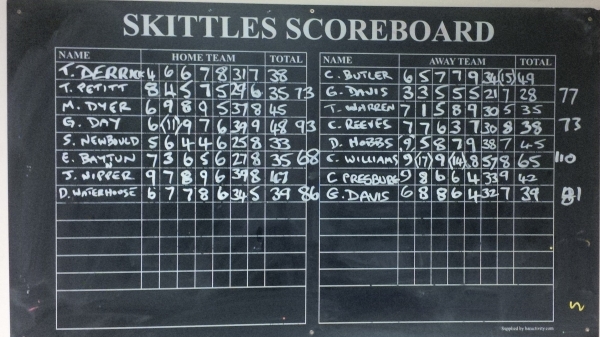 SKITTLES SCOREBOARD
NAME HOME TEAM TOTAL NAME AWAY TEAM TOTAL
T. DERRICK 4 6 6 7 8 31 7 38 C. BUTLER 6 5 7 7 9 34 (15) 49
T. PETITT 8 4 5 7 5 29 6 35 73 G. DAVIS 3 3 5 5 5 21 7 28 77
M. DYER 6 9 8 9 5 37 8 45 T. WARREN 7 1 5 8 9 30 5 35
G. DAY 6 (11) 9 7 6 39 9 48 93 C. REEVES 7 7 6 3 7 30 8 38 73
S. NEWBOULD 5 6 4 4 6 25 8 33 D. HOBBS 9 5 8 7 9 38 7 45
E. BAYTUN 7 3 6 5 6 27 8 35 68 C. WILLIAMS 9 (17) 9 (14) 8 57 8 65 110
J. NIPPER 9 7 8 9 6 39 8 47 C PRESBURG 9 8 6 6 4 33 9 42
D. WATERHOUSE 6 7 7 8 6 34 5 39 86 G. DAVIS 6 8 8 6 4 32 7 39 81
Supplied by baractivity.com